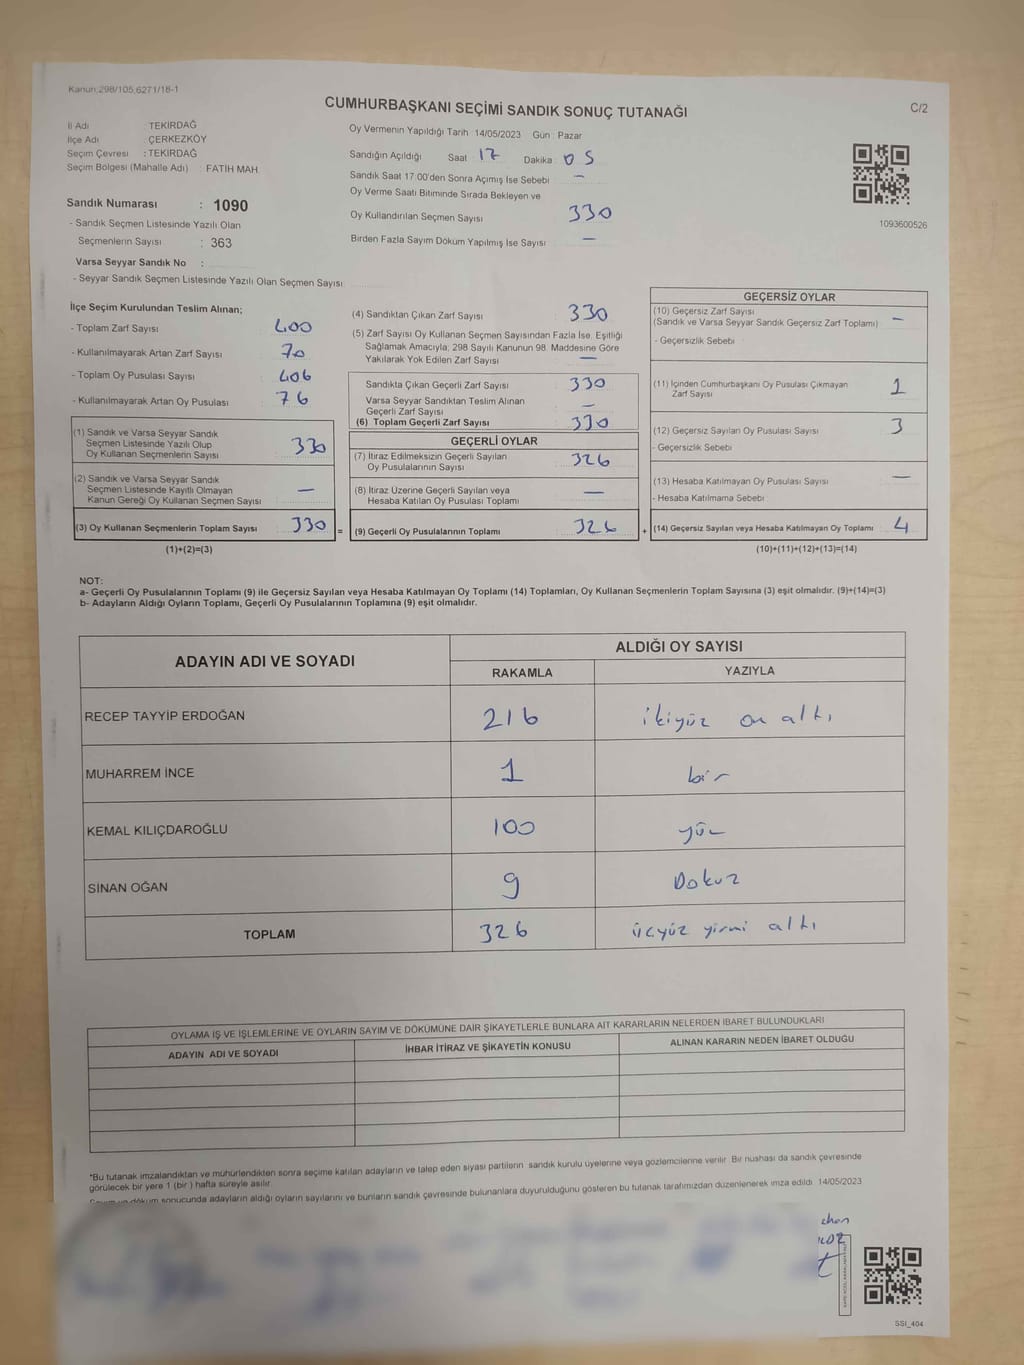 Kanun:298/105,6271/18-1
CUMHURBAŞKANI SEÇİMİ SANDIK SONUÇ TUTANAĞI
C/2
İl Adı : TEKİRDAĞ
İlçe Adı : ÇERKEZKÖY
Seçim Çevresi : TEKİRDAĞ
Seçim Bölgesi (Mahalle Adı) : FATİH MAH.
Sandık Numarası : 1090
- Sandık Seçmen Listesinde Yazılı Olan
Seçmenlerin Sayısı : 363
Varsa Seyyar Sandık No :
- Seyyar Sandık Seçmen Listesinde Yazılı Olan Seçmen Sayısı:
Oy Vermenin Yapıldığı Tarih : 14/05/2023 Gün : Pazar
Sandığın Açıldığı Saat 17 Dakika : 05
Sandık Saat 17:00'den Sonra Açımış İse Sebebi : —
Oy Verme Saati Bitiminde Sırada Bekleyen ve
Oy Kullandırılan Seçmen Sayısı 330
Birden Fazla Sayım Döküm Yapılmış İse Sayısı —
1093600526
İlçe Seçim Kurulundan Teslim Alınan;
- Toplam Zarf Sayısı 400
- Kullanılmayarak Artan Zarf Sayısı 70
- Toplam Oy Pusulası Sayısı 406
- Kullanılmayarak Artan Oy Pusulası 76
(1) Sandık ve Varsa Seyyar Sandık
Seçmen Listesinde Yazılı Olup
Oy Kullanan Seçmenlerin Sayısı 330
(2) Sandık ve Varsa Seyyar Sandık
Seçmen Listesinde Kayıtlı Olmayan
Kanun Gereği Oy Kullanan Seçmen Sayısı —
(3) Oy Kullanan Seçmenlerin Toplam Sayısı 330 =
(1)+(2)=(3)
(4) Sandıktan Çıkan Zarf Sayısı 330
(5) Zarf Sayısı Oy Kullanan Seçmen Sayısından Fazla İse, Eşitliği
Sağlamak Amacıyla; 298 Sayılı Kanunun 98. Maddesine Göre
Yakılarak Yok Edilen Zarf Sayısı —
Sandıkta Çıkan Geçerli Zarf Sayısı 330
Varsa Seyyar Sandıktan Teslim Alınan
Geçerli Zarf Sayısı —
(6) Toplam Geçerli Zarf Sayısı 330
GEÇERLİ OYLAR
(7) İtiraz Edilmeksizin Geçerli Sayılan
Oy Pusulalarının Sayısı 326
(8) İtiraz Üzerine Geçerli Sayılan veya
Hesaba Katılan Oy Pusulası Toplamı —
(9) Geçerli Oy Pusulalarının Toplamı 326 +
GEÇERSİZ OYLAR
(10) Geçersiz Zarf Sayısı
(Sandık ve Varsa Seyyar Sandık Geçersiz Zarf Toplamı) —
- Geçersizlik Sebebi
(11) İçinden Cumhurbaşkanı Oy Pusulası Çıkmayan
Zarf Sayısı 1
(12) Geçersiz Sayılan Oy Pusulası Sayısı 3
- Geçersizlik Sebebi
(13) Hesaba Katılmayan Oy Pusulası Sayısı —
- Hesaba Katılmama Sebebi
(14) Geçersiz Sayılan veya Hesaba Katılmayan Oy Toplamı 4
(10)+(11)+(12)+(13)=(14)
NOT:
a- Geçerli Oy Pusulalarının Toplamı (9) ile Geçersiz Sayılan veya Hesaba Katılmayan Oy Toplamı (14) Toplamları, Oy Kullanan Seçmenlerin Toplam Sayısına (3) eşit olmalıdır. (9)+(14)=(3)
b- Adayların Aldığı Oyların Toplamı, Geçerli Oy Pusulalarının Toplamına (9) eşit olmalıdır.
ADAYIN ADI VE SOYADI ALDIĞI OY SAYISI
RAKAMLA YAZIYLA
RECEP TAYYİP ERDOĞAN 216 ikiyüz on altı
MUHARREM İNCE 1 bir
KEMAL KILIÇDAROĞLU 100 yüz
SİNAN OĞAN 9 Dokuz
TOPLAM 326 üçyüz yirmi altı
OYLAMA İŞ VE İŞLEMLERİNE VE OYLARIN SAYIM VE DÖKÜMÜNE DAİR ŞİKAYETLERLE BUNLARA AİT KARARLARIN NELERDEN İBARET BULUNDUKLARI
ADAYIN ADI VE SOYADI İHBAR İTİRAZ VE ŞİKAYETİN KONUSU ALINAN KARARIN NEDEN İBARET OLDUĞU
*Bu tutanak imzalandıktan ve mühürlendikten sonra seçime katılan adayların ve talep eden siyasi partilerin sandık kurulu üyelerine veya gözlemcilerine verilir. Bir nüshası da sandık çevresinde
görülecek bir yere 1 (bir ) hafta süreyle asılır.
döküm sonucunda adayların aldığı oyların sayılarını ve bunların sandık çevresinde bulunanlara duyurulduğunu gösteren bu tutanak tarafımızdan düzenlenerek imza edildi. 14/05/2023
SSI_404